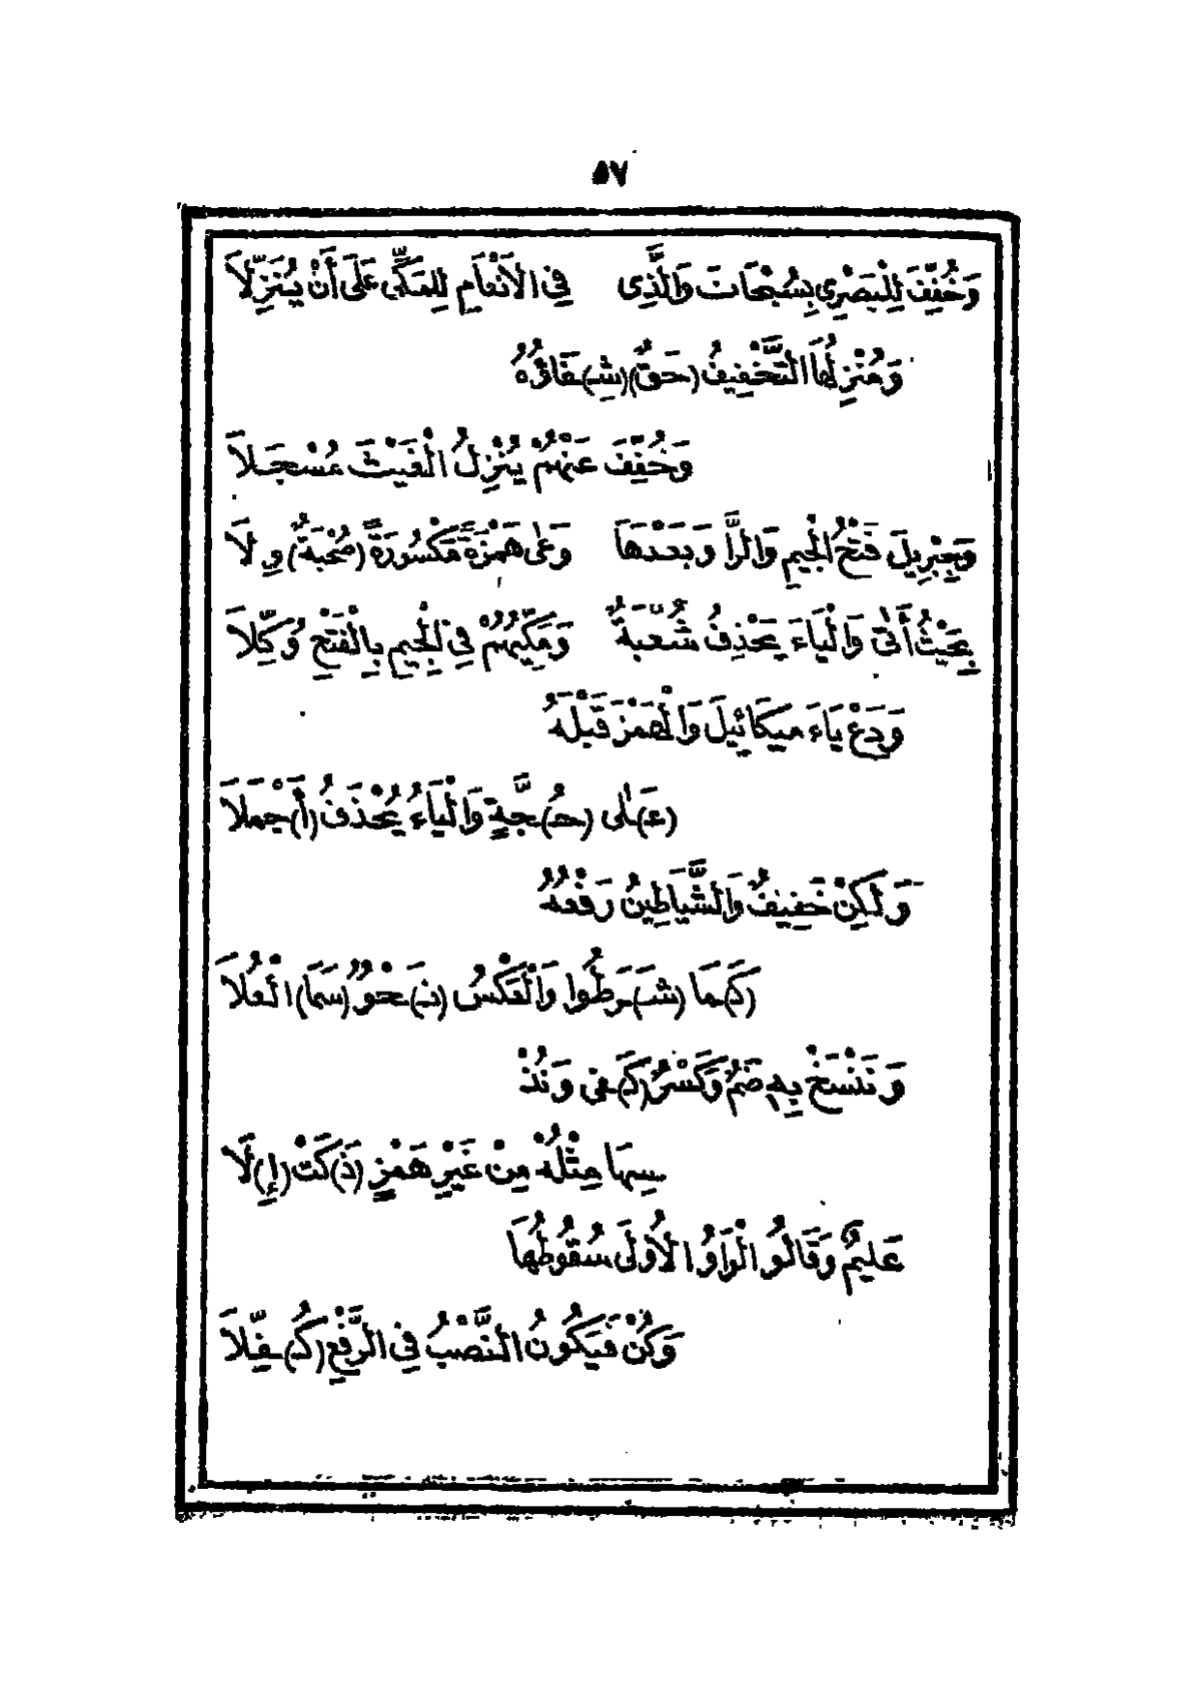 ٥٧
وَخُفِّفَ لِلْبَصْرِي بِسُبْحَانَ وَالَّذِى فِي الْأَنْعَامِ لِلْمَكِّى عَلَى أَنْ يُنَزِّلاَ
وَمُنْزِلُهَا التَّخْفِيفُ (حَقٌّ) (شِـ)ـفَاؤُهُ
وَخُفِّفَ عَنْهُمْ يُنْزِلُ الْغَيْثَ مُسْجَلاَ
وَجِبْرِيلَ فَتْحُ الْجِيمِ وَالرَّا وَبَعْدَهَا وَعٰى هَمْزَةً مَكْسُورَةً (صُحْبَةٌ) وِلاَ
بِحَيْثُ أَتٰى وَالْيَاءَ يَحْذِفُ شُعْبَةٌ وَمَكِّيُّهُمْ فِي الْجِيمِ بِالْفَتْحِ وُكِّلاَ
وَدَعْ يَاءَ مِيكَائِيلَ وَالْهَمْزَ قَبْلَهُ
(عَـ)ـلٰى (حُـ)ـجَّةٍ وَالْيَاءُ يُحْذَفُ (أَ)جْمَلاَ
وَلَكِنْ خَفِيفٌ وَالشَّيَاطِينُ رَفْعُهُ
(كَـ)ـمَا (شَـ)ـرَطُوا وَالْعَكْسُ (نَـ)ـحْوٌ (سَمَا) الْعُلاَ
وَنَنْسَخْ بِهِ ضَمٌّ وَكَسْرٌ (كَـ)ـفٰى وَنُنْـ
ـسِهَا مِثْلُهُ مِنْ غَيْرِ هَمْزٍ (ذَ)كَتْ (إِ)لَا
عَلِيمٌ وَقَالُوا الْوَاوُ الْأُولَى سُقُوطُهَا
وَكُنْ فَيَكُونُ النَّصْبُ فِي الرَّفْعِ (كُـ)ـفِّلاَ